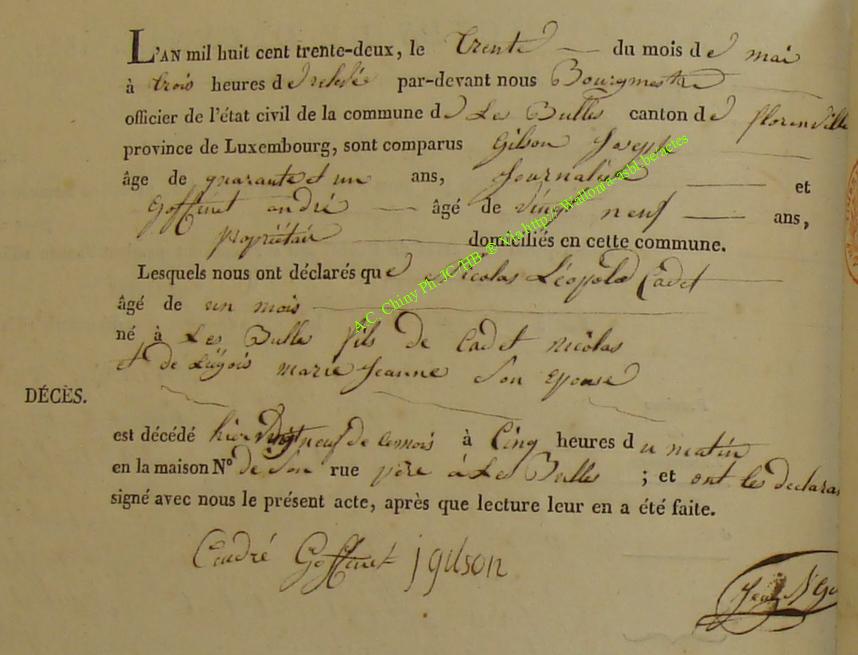 L'AN mil huit cent trente-deux, le trente du mois de mai
à trois heures de relevé par-devant nous Bourgmestre
officier de l'état civil de la commune de Les Bulles canton de florenville
province de Luxembourg, sont comparus Gilson Joseph
âge de quarante et un ans, Journalier et
Goffinet andré âgé de vingt neuf ans,
propriétair domiciliés en cette commune.
Lesquels nous ont déclarés que Nicolas Léopold Cadet
âgé de un mois
né à Les Bulles fils de Cadet nicolas
et de marie Jeanne Son epouse
DÉCÈS.
est décédé hier vingt neuf de ce mois à Cinq heures du matin
en la maison N° de Son rue père à Les Bulles ; et ont les declara
signé avec nous le présent acte, après que lecture leur en a été faite.
Goffinet j gilson
A.C. Chiny Ph. JC HB ® via http://wallonia-asbl.be/actes